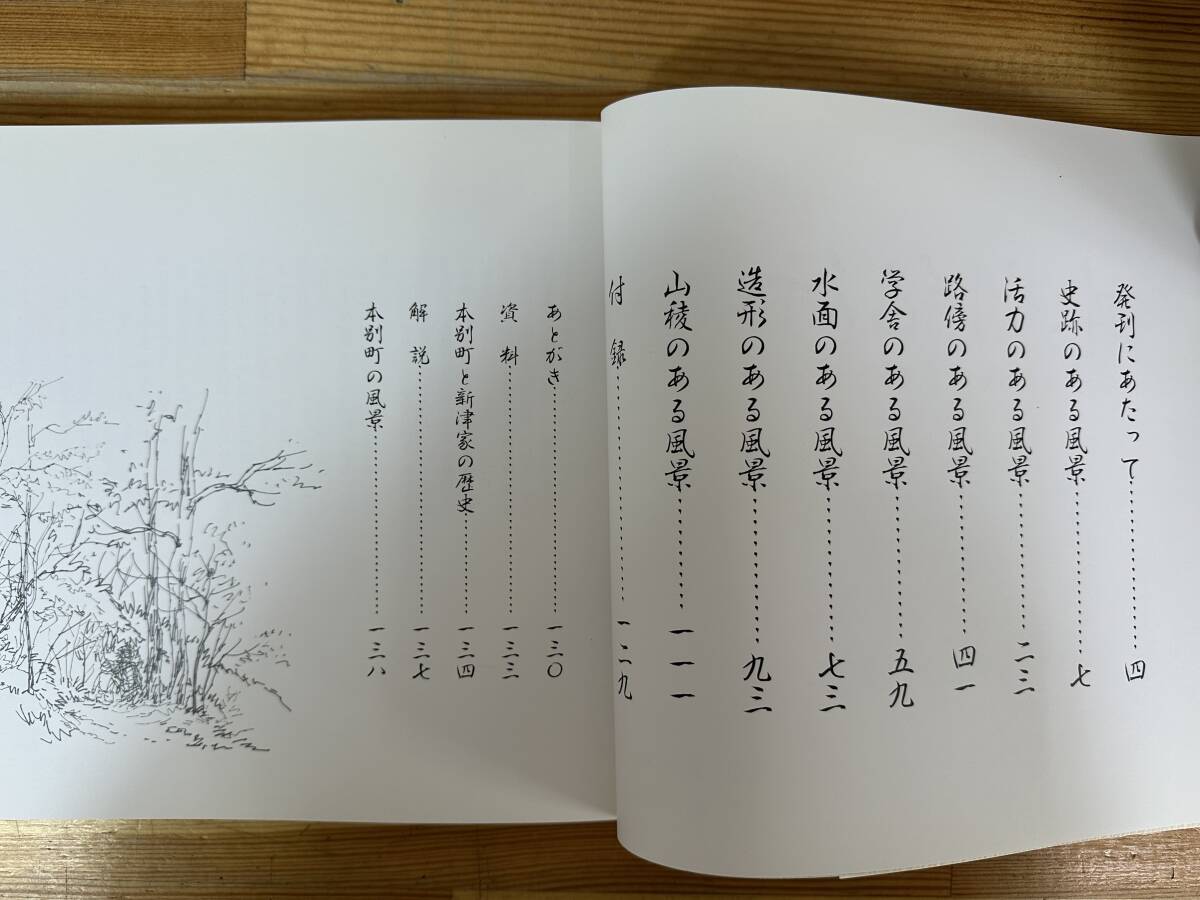 発刊にあたって……………四
史跡のある風景……………七
活力のある風景……………二三
路傍のある風景……………四一
学舎のある風景……………五九
水面のある風景……………七三
造形のある風景……………九三
山稜のある風景……………一一一
付録……………一二九
あとがき……………一三〇
資料……………一三三
本別町と新津家の歴史……………一三四
解説……………一三七
本別町の風景……………一三八